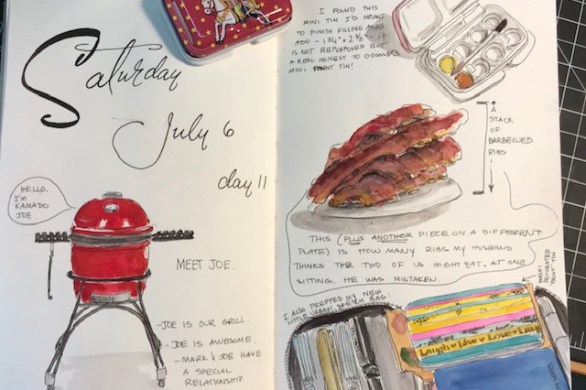 Saturday
July 6
day 11
HELLO.
I'M
KAMADO
JOE.
MEET JOE.
-JOE IS OUR GRILL.
-JOE IS AWESOME.
-MARK & JOE HAVE
A SPECIAL
RELATIONSHIP
I FOUND THIS
MINI TIN I'D MEANT
TO FINISH FILLING AGES
AGO - IT
IS NOT REPURPOSED BUT
A REAL HONEST TO GOODNESS
MINI PAINT TIN!
A
STACK
OF
BARBEQUED
RIBS
THIS (PLUS ANOTHER PIECE ON A DIFFERENT
PLATE) IS HOW MANY RIBS MY HUSBAND
THINKS THE TWO OF US MIGHT EAT, AT ONE
SITTING. HE WAS MISTAKEN.
I ALSO PREPPED MY NEW
LITTLE URBAN SKETCH BAG
DECORATED
PAINT TIN
Laugh Live Love Laug